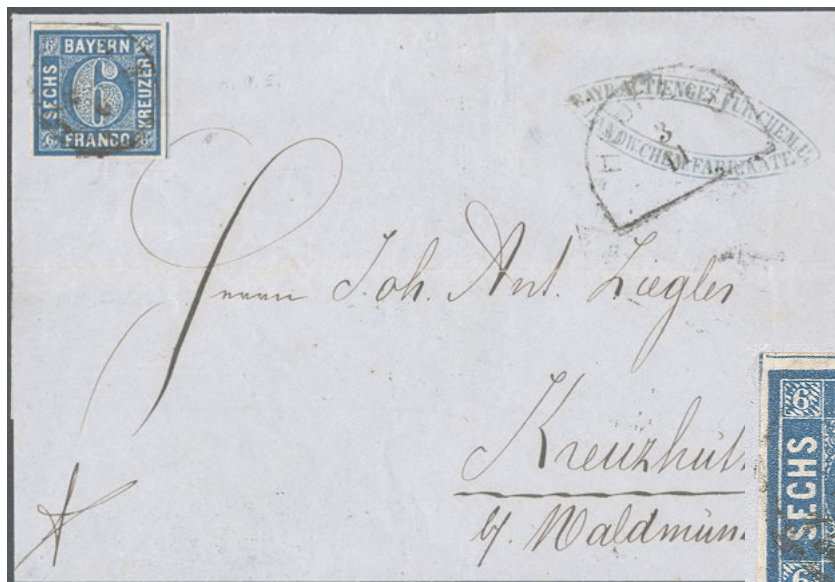 BAYERN
SECHS
6
KREUZER
FRANCO
BAYR. ACTIENGES. FÜR CHEM. U.
LANDW. CHEM. FABRIKATE.
Herrn Joh. Ant. Ziegler
Kreuzhüt
b/ Waldmün
6
SECHS
6